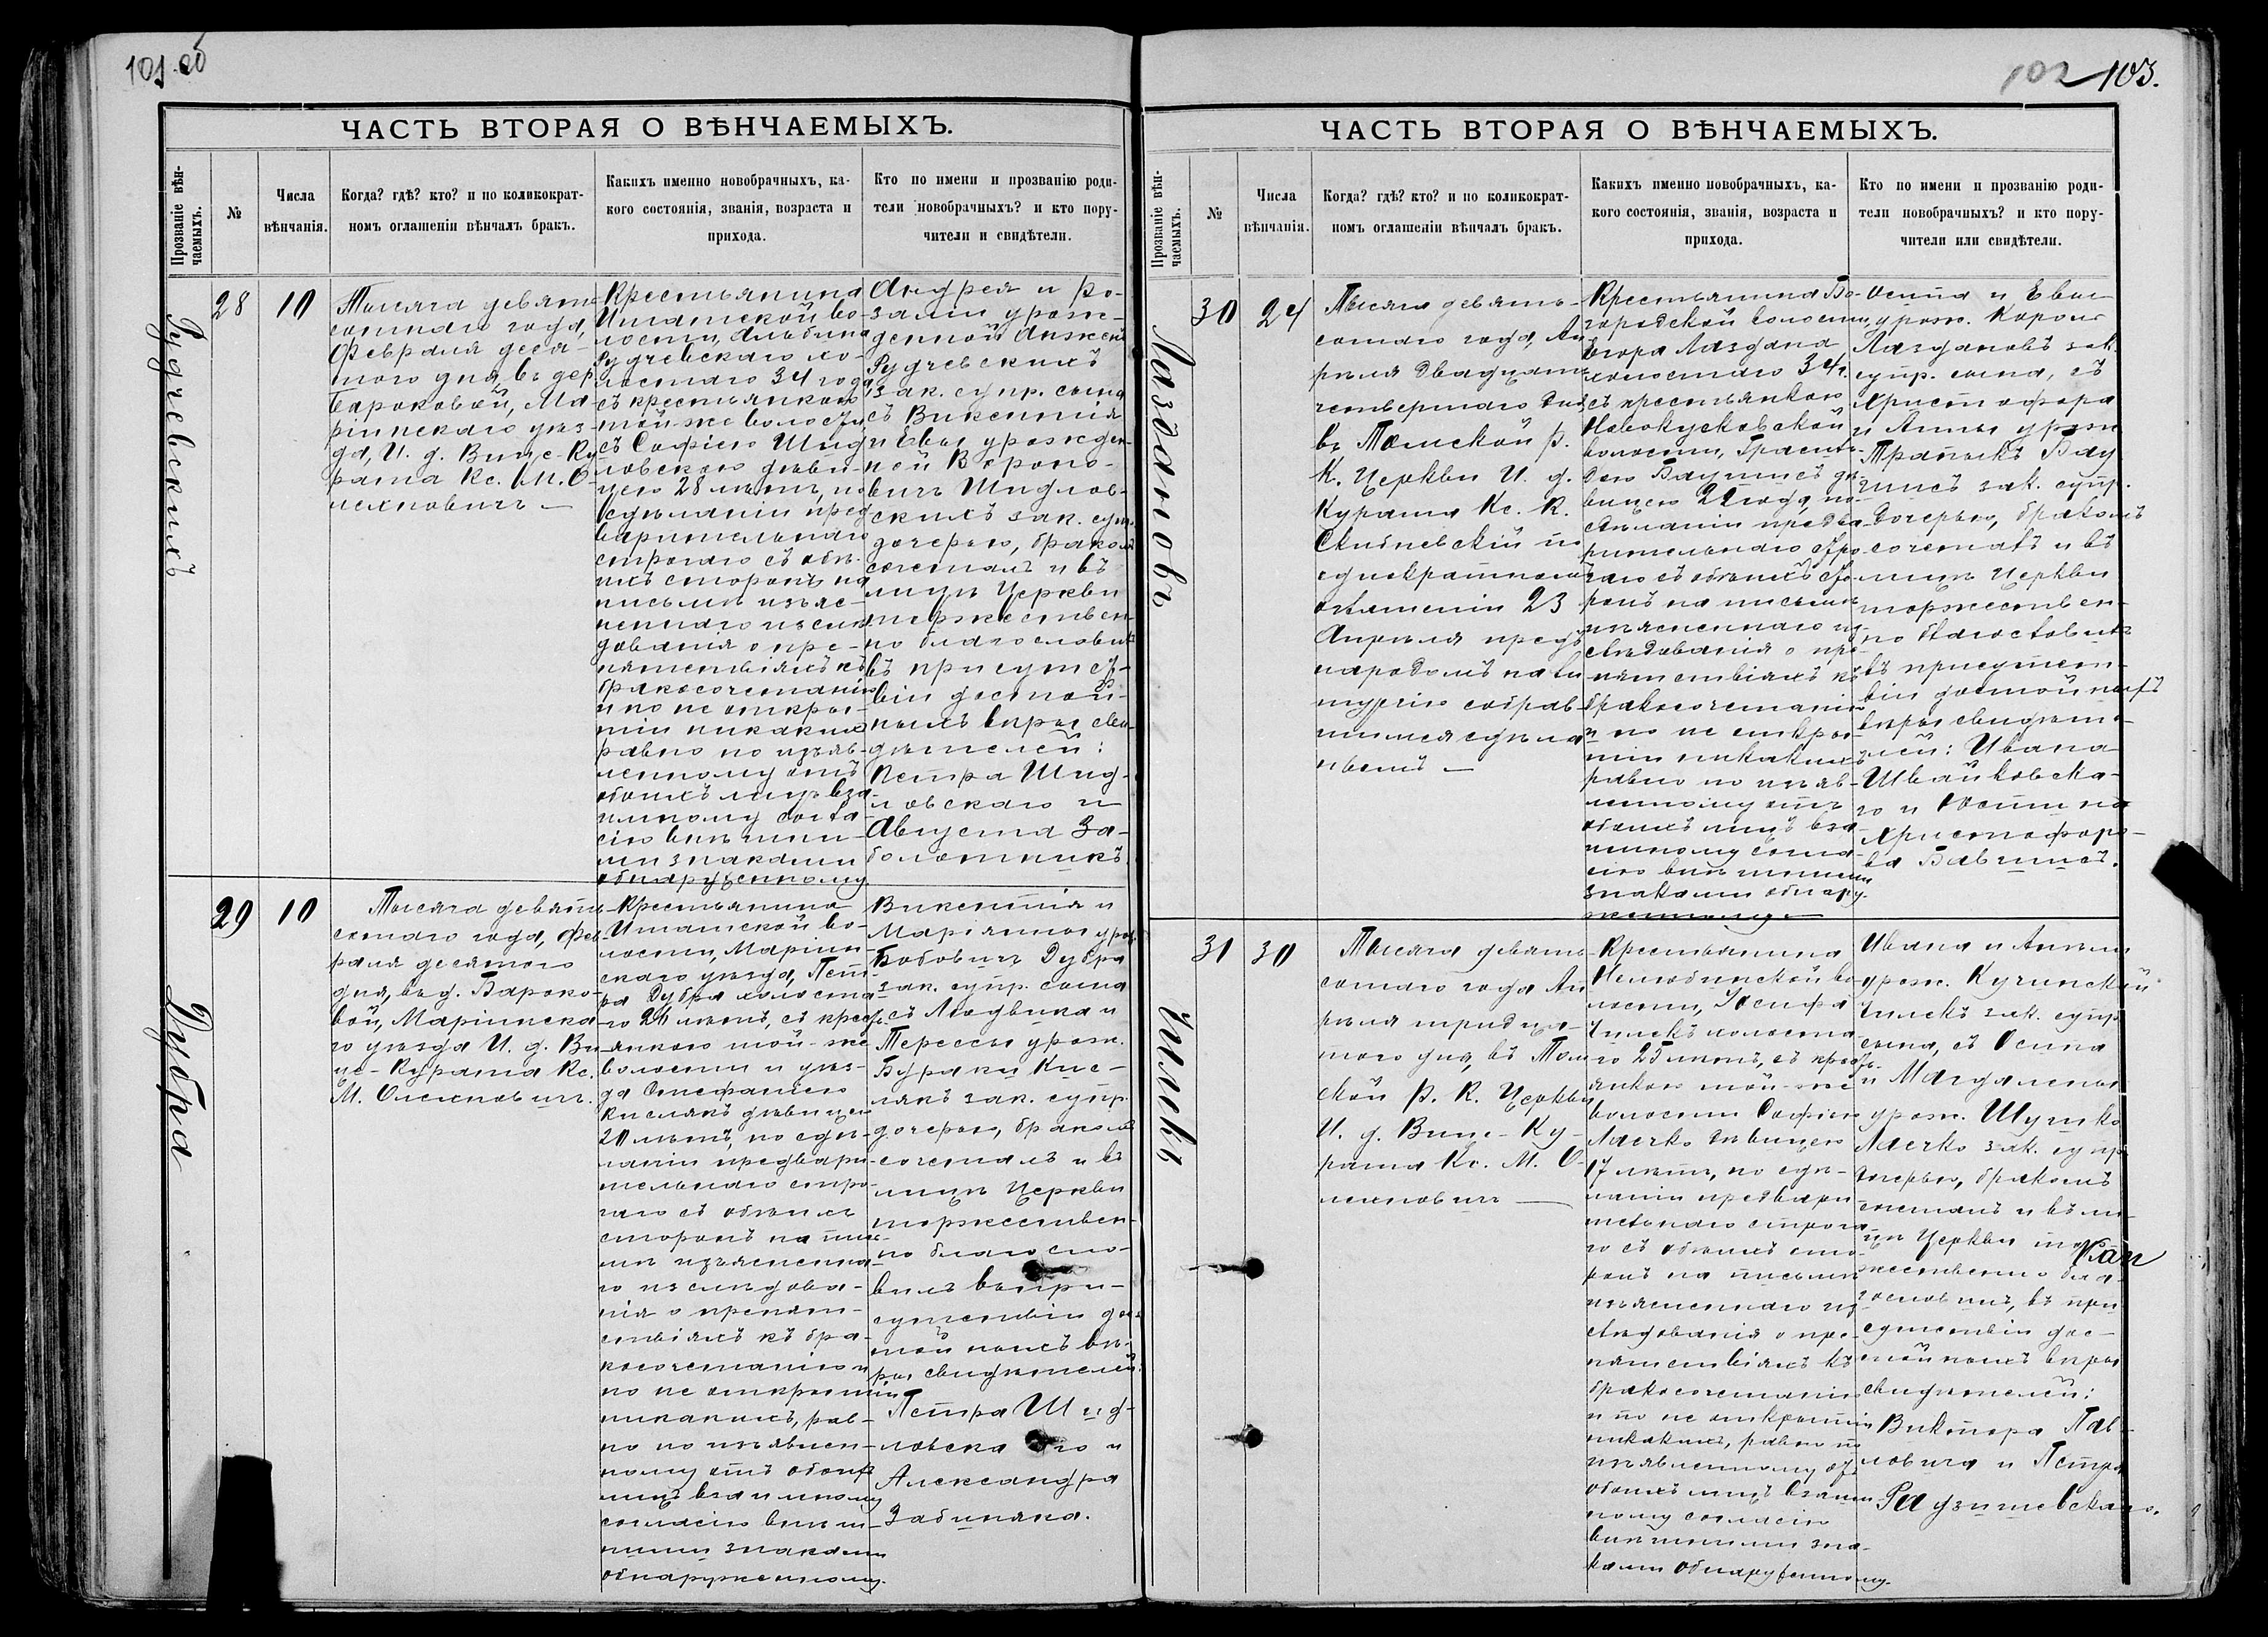 101 об
ЧАСТЬ ВТОРАЯ О ВѢНЧАЕМЫХЪ.
Прозваніе вѣн-
чаемыхъ.
№
Числа
вѣнчанія.
Когда? гдѣ? кто? и по коликократ-
номъ оглашеніи вѣнчалъ бракъ.
Какихъ именно новобрачныхъ, ка-
кого состоянія, званія, возраста и
прихода.
Кто по имени и прозванію роди-
тели новобрачныхъ? и кто пору-
чители и свидѣтели.
Рудчевскихъ
28
10
Тысяча девять
сотнаго года,
Февраля деся-
таго дня, въ дер
Бароковой, Ма-
ріинскаго уѣз-
да, И. д. Вице-Ку
рата Кс. М. О-
лехновичъ —
Крестьянина
Иматской во-
лости, Альбина
Рудчевскаго хо-
лостаго 34 года
съ крестьянкою
той-же волости
съ Софіею Шид
ловскою дѣви-
цею 28 лѣтъ, по
сдѣланіи пред
варительнаго
строгаго съ обѣ-
ихъ сторонъ на
письмѣ изъяс-
неннаго изслѣ
дованія о пре-
пятствіяхъ къ
бракосочетанію
и по не откры-
тіи никакихъ
равно по изъяв-
ленному отъ
обоихъ лицъ вза
имному согла-
сію внѣшни-
ми знаками
обнаруженному.
Андрея и Ро-
заліи урож-
денной Анжел
Рудчевскихъ
зак. супр. сына
съ Викентія
и Евы урожден
ной Вороно-
вичъ Шидлов-
скихъ зак. супр.
дочерью, бракомъ
сочеталъ и въ
лицѣ Церкви
торжествен-
но благословилъ
въ присутст-
віи достой-
ныхъ вѣры сви-
дѣтелей:
Петра Шид-
ловскаго и
Августа За-
болотникъ.
Дубра
29
10
Тысяча девять
сотнаго года, Фев
раля десятаго
дня, въ д. Бароко-
вой, Маріинска
го уѣзда И. д. Ви
це-Курата Кс.
М. Олехновичъ.
Крестьянина
Иматской во-
лости, Маріин-
скаго уѣзда, Пет
ра Дубра холоста
го 21 лѣтъ, съ крест
янкою той-же
волости и уѣз-
да Стефаніею
Кислякъ дѣвицею
20 лѣтъ, по сдѣ-
ланіи предвари
тельнаго стро-
гаго съ обѣихъ
сторонъ на пись-
мѣ изъясненна
го изслѣдова-
нія о препят-
ствіяхъ къ бра-
косочетанію и
по не открытіи
никакихъ, рав-
но по изъявлен-
ному отъ обоихъ
лицъ взаимному
согласію внѣш-
ними знаками
обнаруженному.
Викентія и
Маріанны урож
Бобовичъ Дубра
зак. супр. сына
съ Людвика и
Терессы урож.
Бураки Кис-
лякъ зак. супр.
дочерью, бракомъ
сочеталъ и въ
лицѣ Церкви
торжествен-
но благосло-
вилъ въ при-
сутствіи дос-
тойныхъ вѣ-
ры свидѣтелей:
Петра Шид-
ловскаго и
Александра
Забиняка.
102 103.
ЧАСТЬ ВТОРАЯ О ВѢНЧАЕМЫХЪ.
Прозваніе вѣн-
чаемыхъ.
№
Числа
вѣнчанія.
Когда? гдѣ? кто? и по коликократ-
номъ оглашеніи вѣнчалъ бракъ.
Какихъ именно новобрачныхъ, ка-
кого состоянія, званія, возраста и
прихода.
Кто по имени и прозванію роди-
тели новобрачныхъ? и кто пору-
чители или свидѣтели.
Лаздановъ
30
24
Тысяча девять-
сотаго года, Ап
рѣля двадцать
четвертаго дня,
въ Томской Р.
К. Церкви И. д.
Курата Кс. К.
Скибневскій по
однократномъ
оглашеніи 23
Апрѣля предъ
народомъ на ли
тургію собрав-
шимся сдѣла
нномъ —
Крестьянина Бо-
городской волости,
Егора Лаздана
холостаго 34 г.
съ крестьянкою
Новокусковской
волости,
Баутисъ дѣ-
вицею 22 года, по
сдѣланіи предва
рительнаго стро
гаго съ обѣихъ сто-
ронъ на письмѣ
изъясненнаго из-
слѣдованія о пре
пятствіяхъ къ
бракосочетанію
и по не откры-
тіи никакихъ
равно по изъяв-
ленному отъ
обоихъ лицъ вза
имному согла-
сію внѣшними
знаками обнару
женному —
Осипа и Евы
урож. Кароль
Лаздановъ зак.
супр. сына, съ
Христофора
и Анны урож
Трапыкъ Бау
тисъ зак. супр.
дочерью, бракомъ
сочеталъ и въ
лицѣ Церкви
торжествен-
но благословилъ
въ присутст-
віи достойныхъ
вѣры свидѣте-
лей: Ивана
Швайковска-
го и Устина
Христофоро-
ва Бавтисъ.
Чилекъ
31
30
Тысяча девять
сотаго года Ап
рѣля тридца-
таго дня, въ Том
ской Р. К. Церкви
И. д. Вице-Ку-
рата Кс. М. О-
лехновичъ —
Крестьянина
Нелюбинской во-
лости, Іосифа
Чилекъ холоста
го 25 лѣтъ, съ крест
янкою той-же
волости Софіею
Ласчко дѣвицею
17 лѣтъ, по сдѣ-
ланіи предвари
тельнаго строга
го съ обѣихъ сто-
ронъ на письмѣ
изъясненнаго из
слѣдованія о пре-
пятствіяхъ къ
бракосочетанію
и по не открытіи
никакихъ, равно по
изъявленному отъ
обоихъ лицъ взаим
ному согласію
внѣшними зна-
ками обнаруженному.
Ивана и Анны
урож. Кучинской
Чилекъ зак. супр
сына, съ Осипа
и Магдалены
урож. Шушко
Ласчко зак. супр
дочерью, бракомъ
сочеталъ и въ ли-
цѣ Церкви тор-
жественно бла-
гословилъ, въ при
сутствіи дос-
тойныхъ вѣры
свидѣтелей:
Виктора Пав-
ловича и Петра
Раузишевскаго.